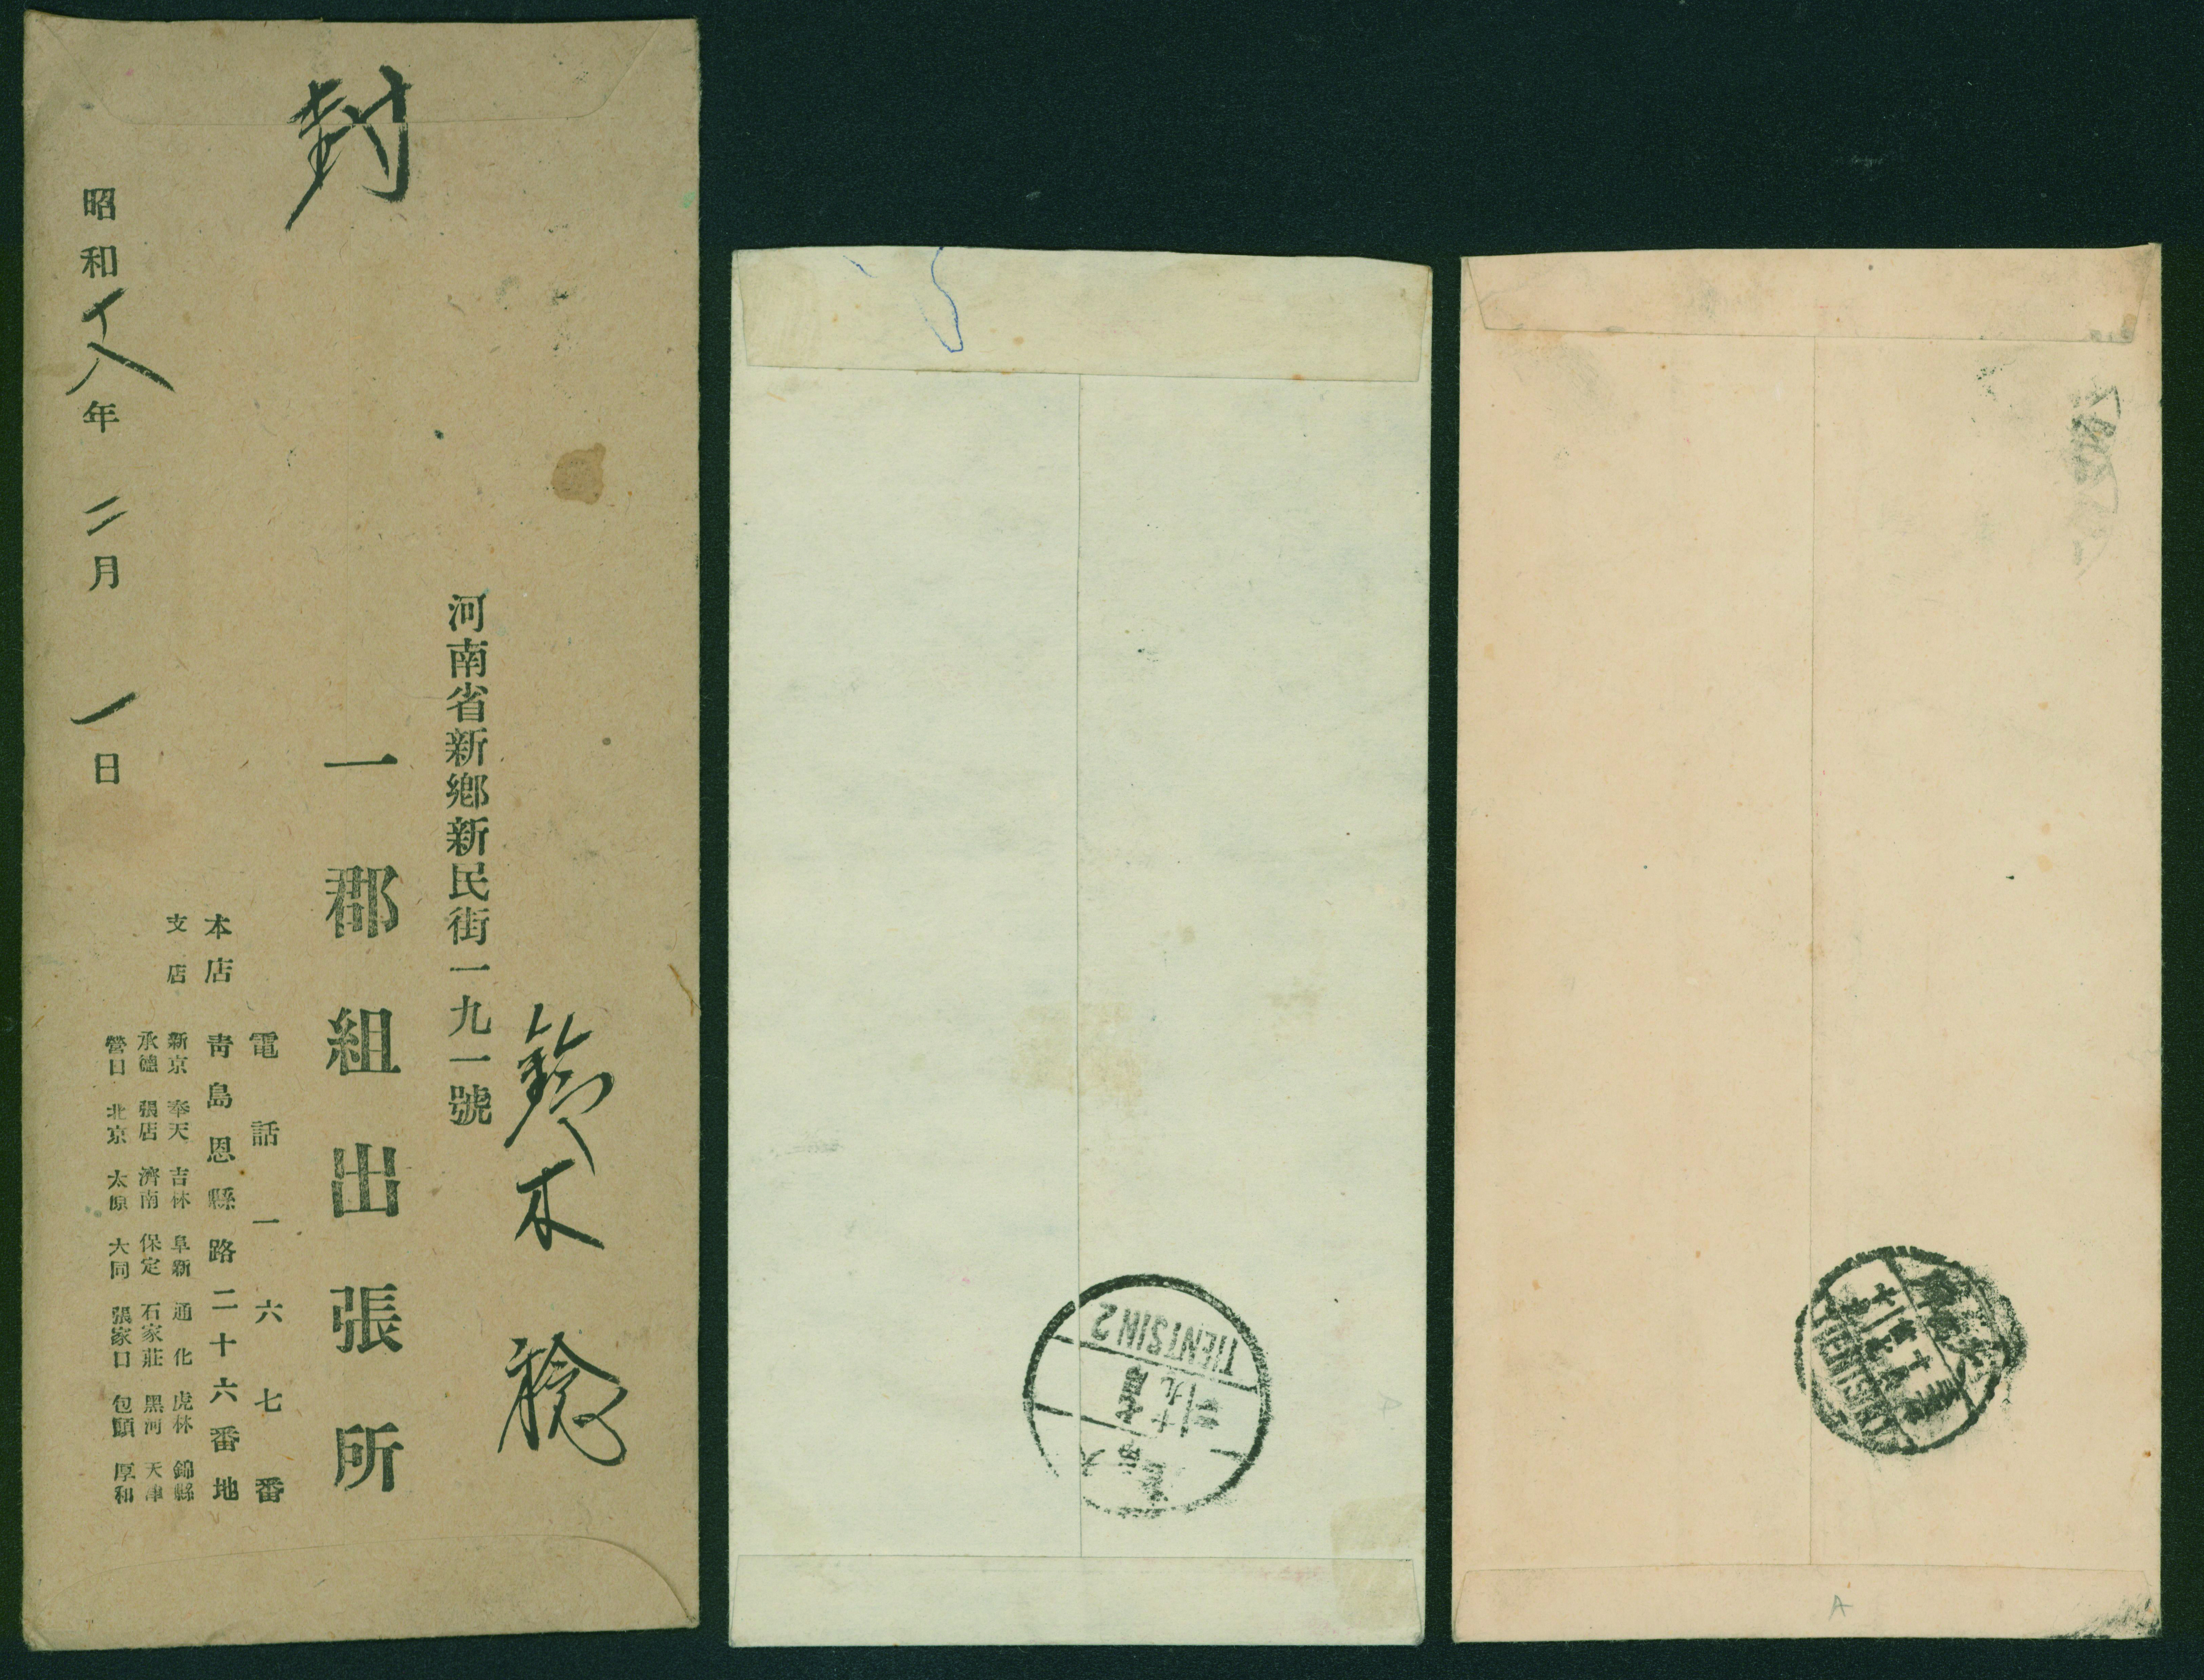 封
鈴木稔
河南省新鄉新民街一九一號
一郡組出張所
電話一六七番
本店 靑島恩縣路二十六番地
支店 新京 奉天 吉林 阜新 通化 虎林 錦縣
承德 張店 濟南 保定 石家莊 黑河 天津
營口 北京 太原 大同 張家口 包頭 厚和
昭和十八年二月一日
TIENTSIN 2
TIENTSIN
A